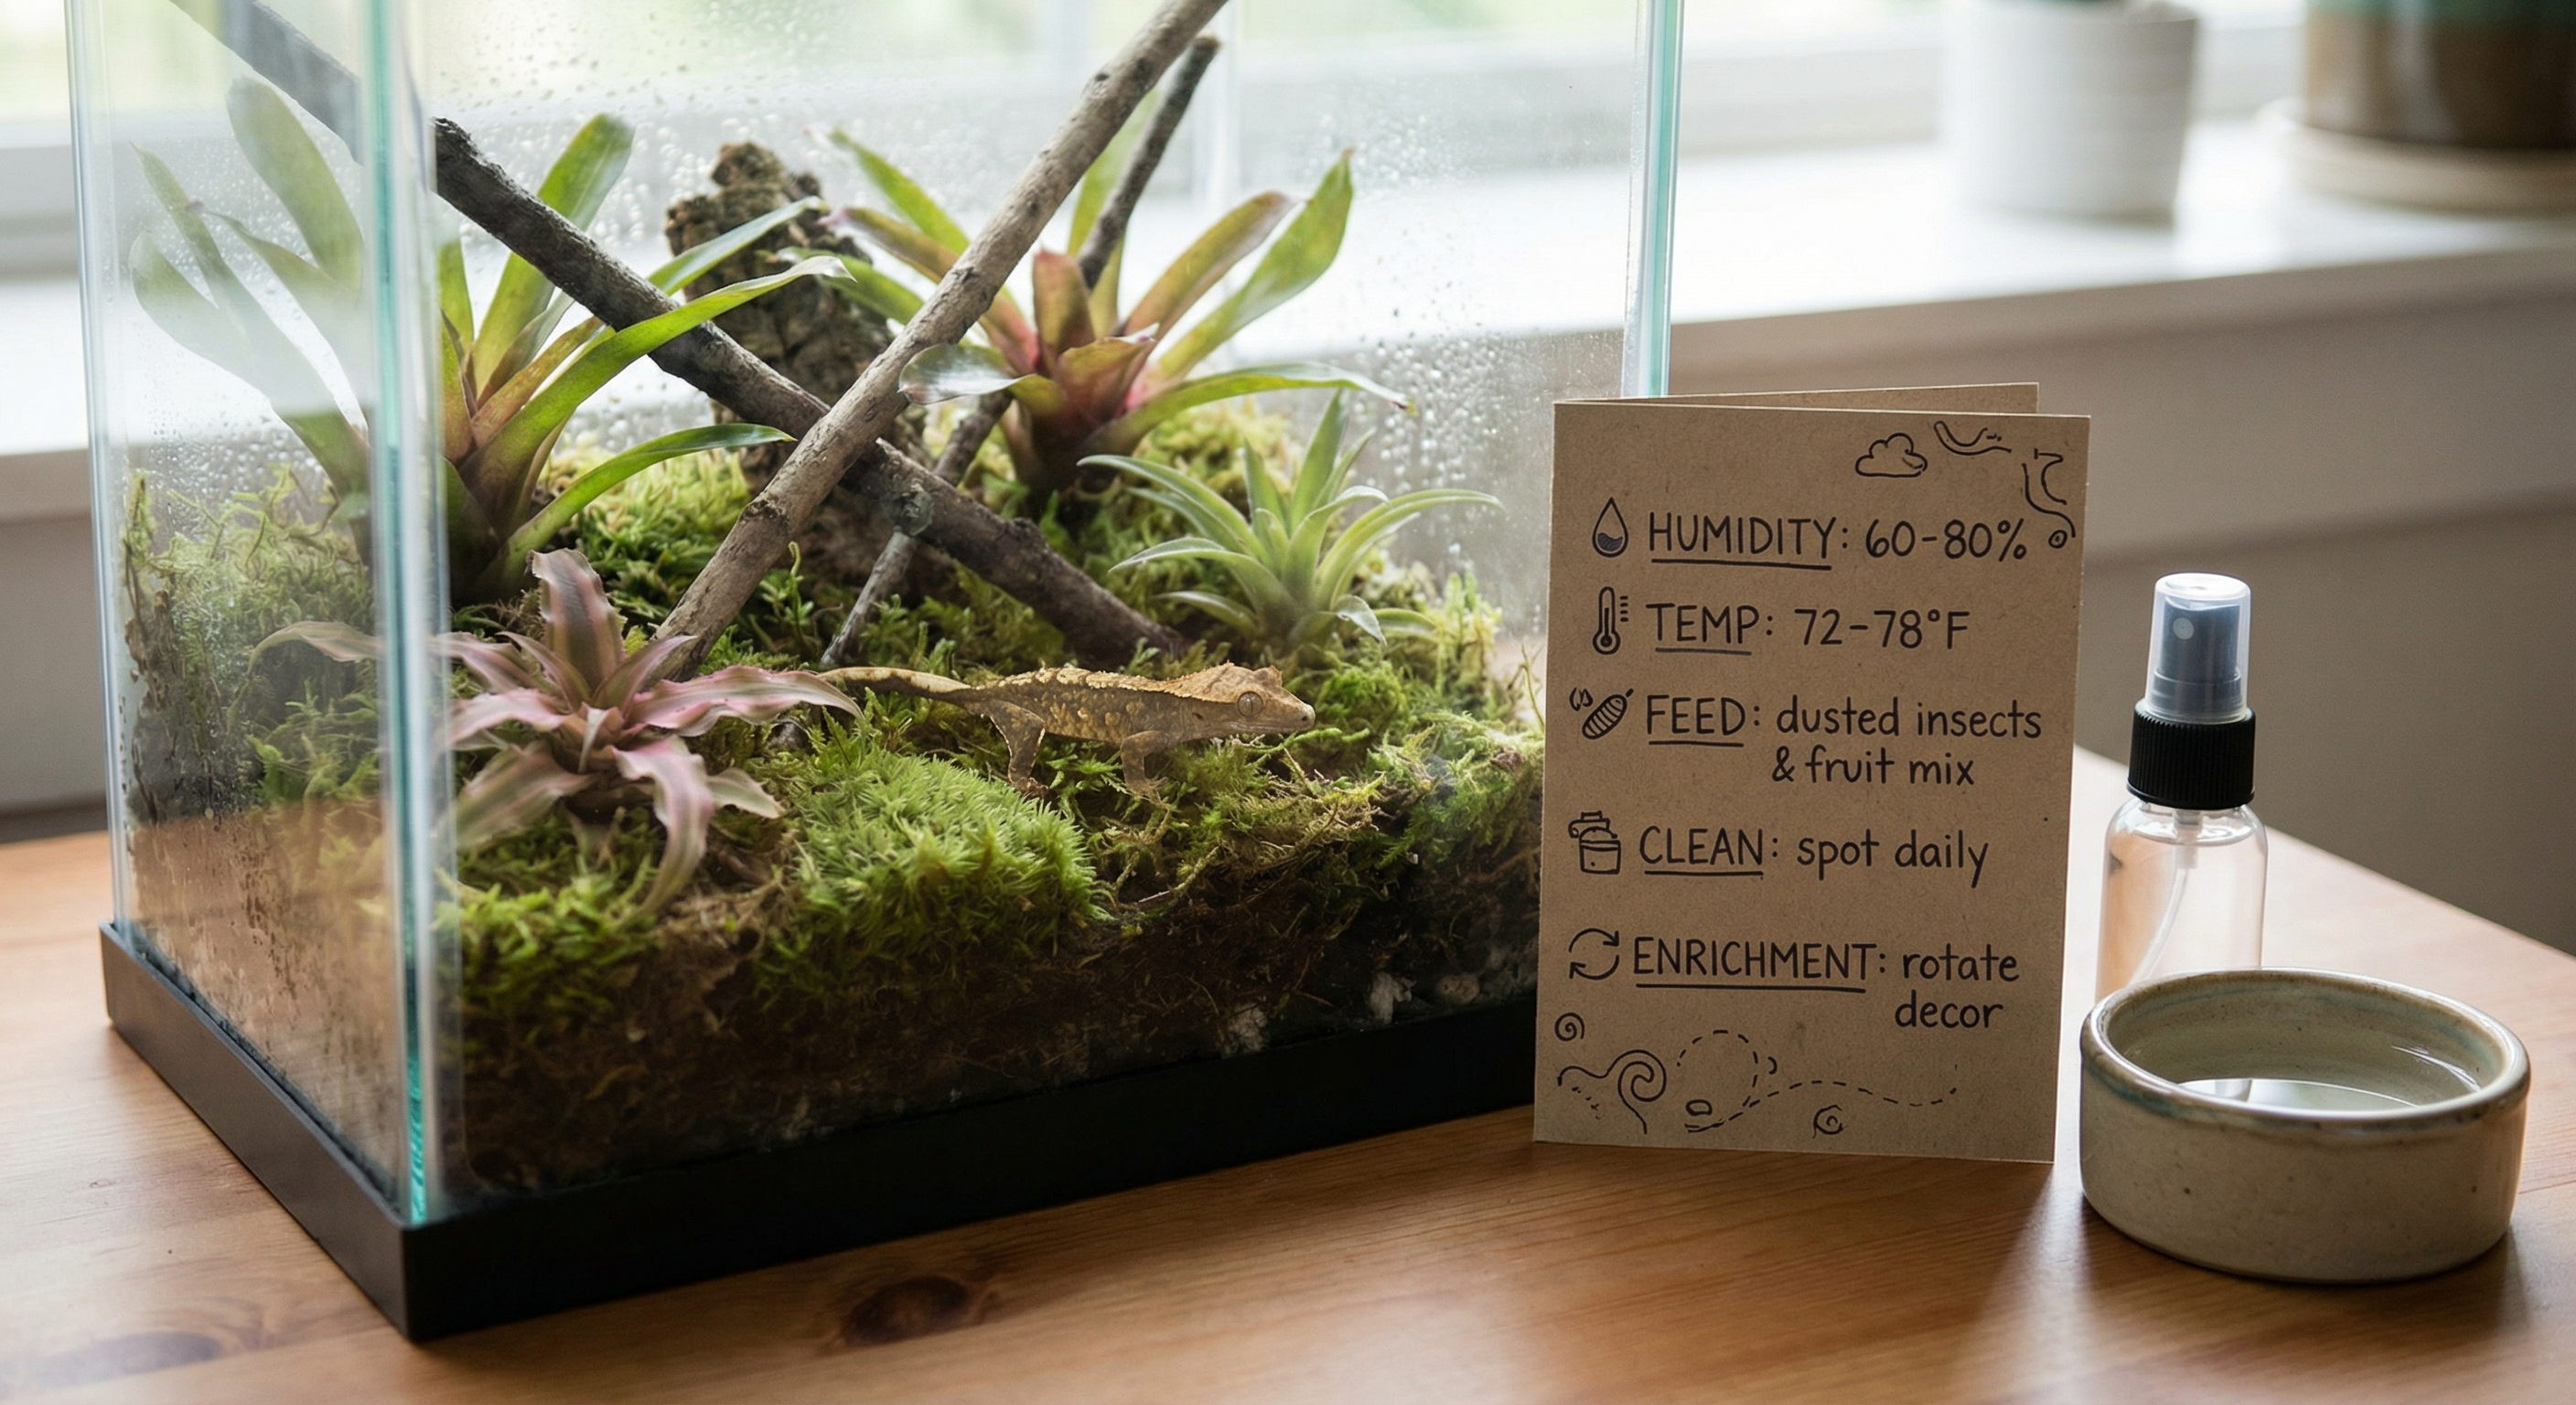 HUMIDITY: 60-80%
TEMP: 72-78°F
FEED: dusted insects
& fruit mix
CLEAN: spot daily
ENRICHMENT: rotate
decor